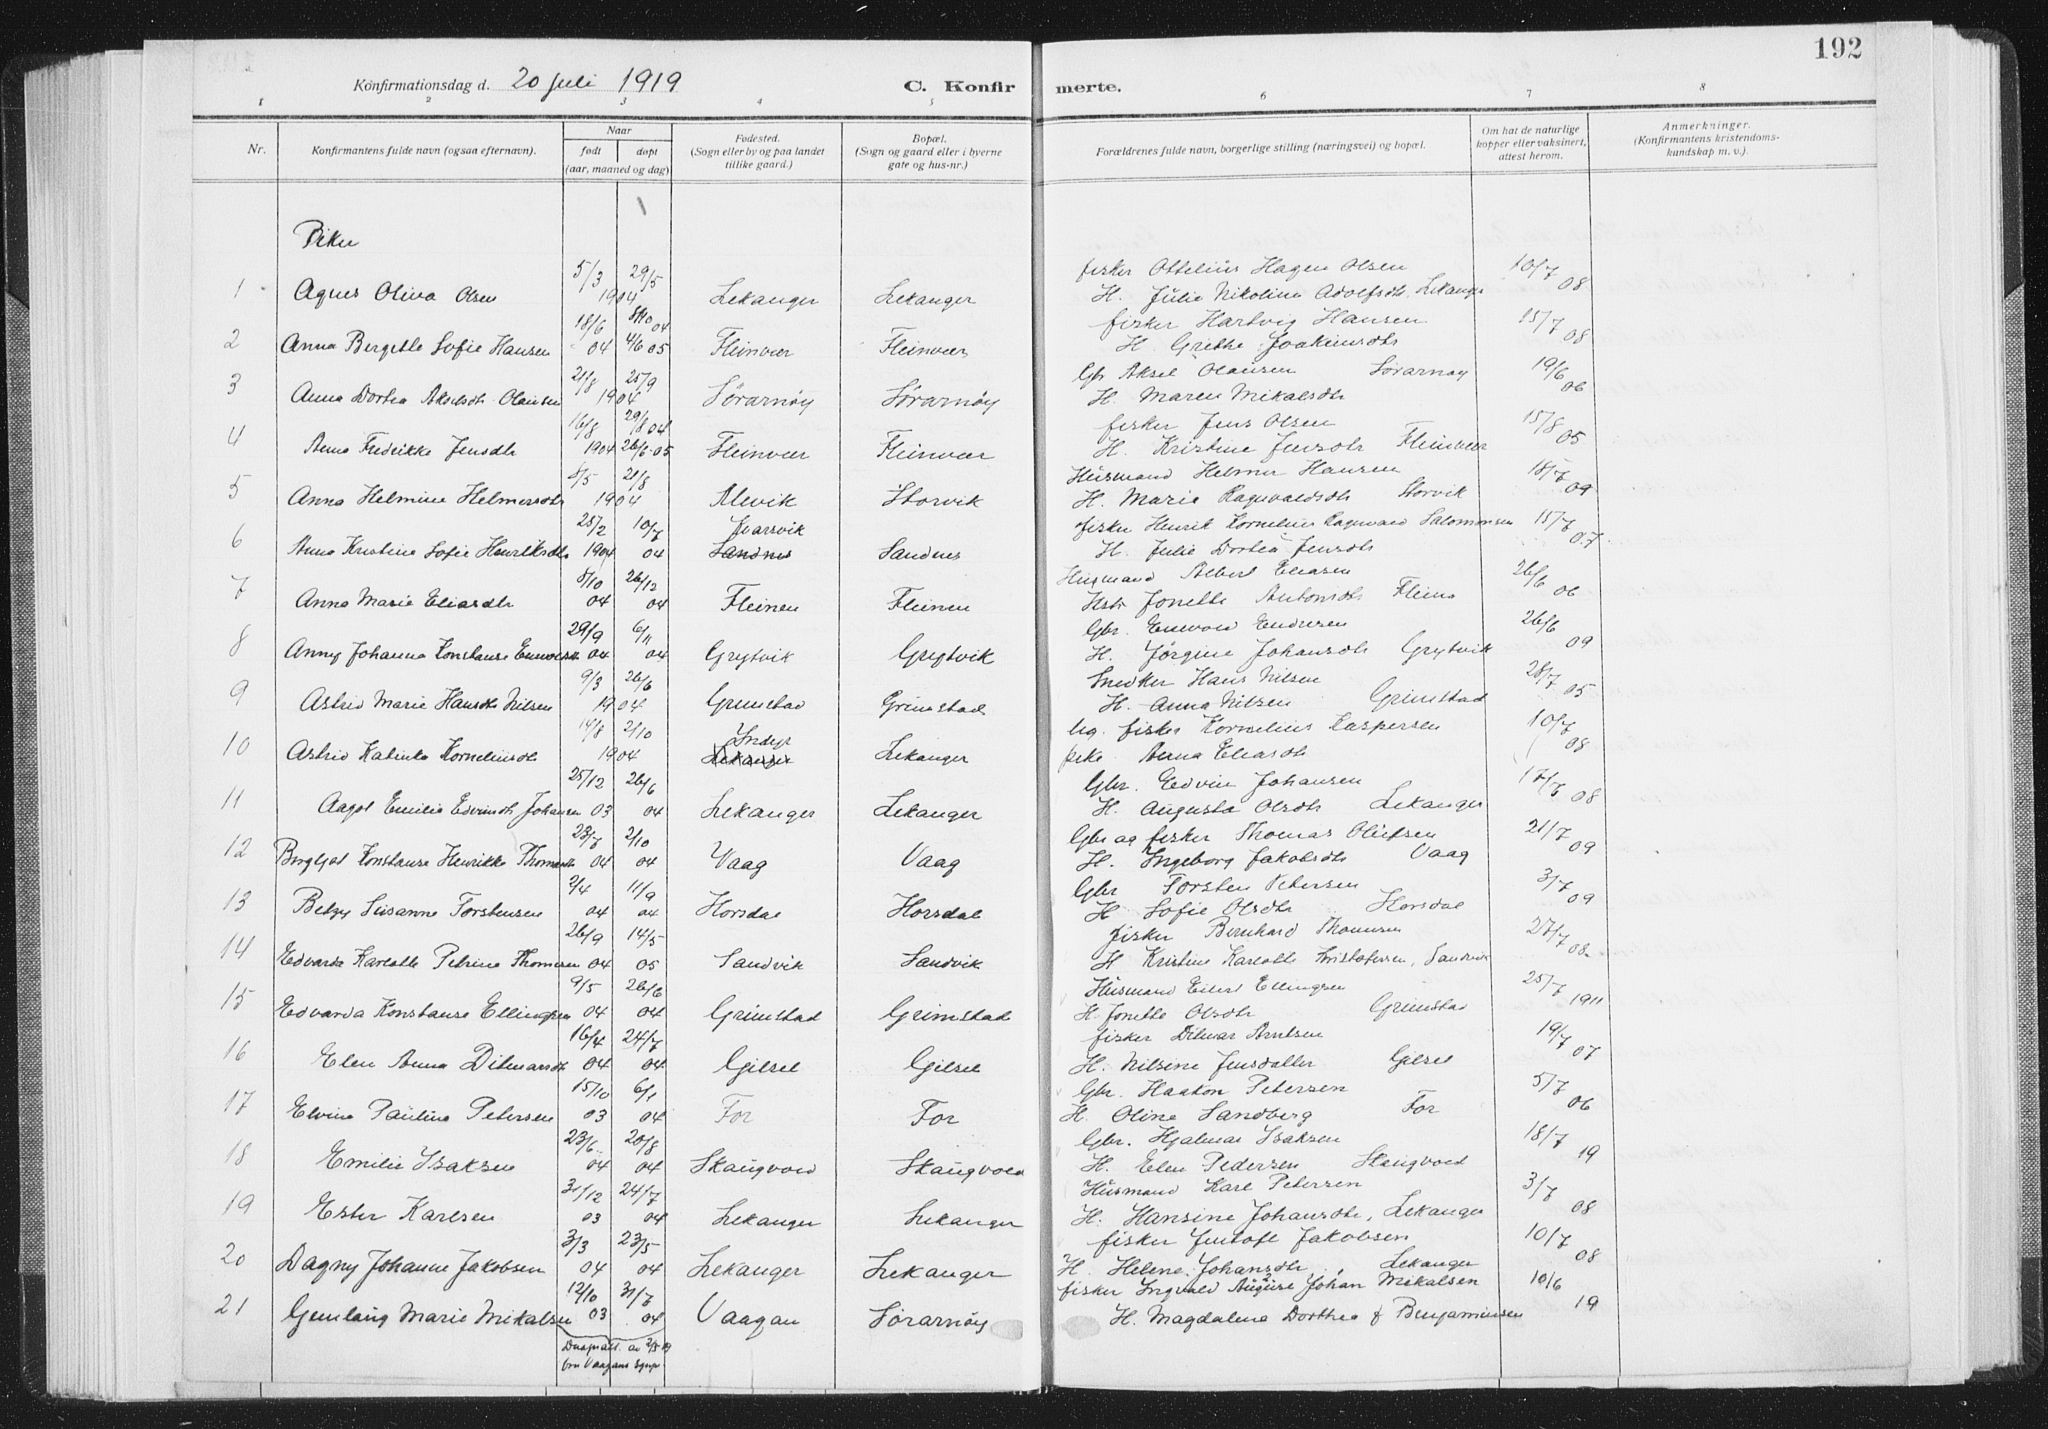 192
Konfirmationsdag d. 20 juli 1919 C. Konfirmerte.
1 2 3 4 5 6 7 8
Nr. Konfirmantens fulde navn (ogsaa efternavn). Naar født døpt (aar, maaned og dag) Fødested. (Sogn eller by og paa landet tillike gaard.) Bopæl. (Sogn og gaard eller i byerne gate og hus-nr.) Forældrenes fulde navn, borgerlige stilling (næringsvei) og bopæl. Om hat de naturlige kopper eller vaksinert, attest herom. Anmerkninger. (Konfirmantens kristendomskundskap m. v.).
Piker
5/3 29/5 fisker Ottelius Hagen Olsen 10/7
1 Agnes Oliva Olsen 1904 Lekanger Lekanger H. Julie Nikoline Adolfsdtr. Lekanger 08
18/6 8/10 04 fisker Hartvig Hansen 15/7
2 Anna Bergitte Sofie Hansen 04 4/6 05 Fleinvær Fleinvær H. Grethe Joakimsdtr 08
21/8 25/9 Gbr Aksel Olausen Sørarnøy 19/6
3 Anna Dortea Akselsdtr Olausen 1904 Sørarnøy Sørarnøy H. Maren Mikalsdtr 06
16/8 29/8 04 fisker Jens Olsen 15/8
4 Anna Fredrikke Jensdtr 1904 26/6-05 Fleinvær Fleinvær H. Kristine Jensdtr Fleinvær 05
8/5 21/8 Husmand Helmer Hansen 18/7
5 Anna Helmine Helmersdtr 1904 Alevik Storvik H. Marie Ragnvaldsdtr Storvik 09
25/2 10/7 Kvarsvik fisker Henrik Kornelius Ragnvald Salomonsen 15/7
6 Anna Kristine Sofie Henriksdtr 1904 04 Sandnes Sandnes H. Julie Dortea Jensdtr 07
8/10 26/12 Husmand Albert Eliasen 26/6
7 Anna Marie Eliasdtr 04 04 Fleinen Fleinen Hstr Jonette Antonsdtr Fleina 06
29/9 6/11 Gbr. Enevold Endresen 26/6
8 Anny Johanna Konstanse Enevoldsdtr 04 04 Grytvik Grytvik H. Jørgine Johansdtr Grytvik 09
9/3 26/6 Snedker Hans Nilsen 28/7
9 Astrid Marie Hansdtr Nilsen 1904 Grimstad Grimstad H. Anna Nilsen Grimstad 05
14/8 2/10 Indyr ug. fisker Kornelius Kaspersen 10/7
10 Astrid Katinka Korneliusdtr 1904 Lekanger Lekanger pike Anna Eliasdtr 08
25/12 26/6 Gbr. Edvin Johansen 17/6
11 Aagot Emilie Edvinsdtr Johansen 03 04 Lekanger Lekanger H. Augusta Olsdtr Lekanger 08
23/7 2/10 Gbr og fisker Thomas Olufsen 21/7
12 Bergljot Konstanse Henrikke Thomasdtr 04 04 Vaag Vaag H. Ingeborg Jakobsdtr Vaag 09
2/4 11/9 Gbr Torsten Petersen 3/7
13 Betzy Susanne Torstensen 04 04 Horsdal Horsdal H Sofie Olsdtr Horsdal 09
26/9 14/5 fisker Bernhard Thomsen 27/7
14 Edvarda Karlotte Petrine Thomsen 04 05 Sandvik Sandvik H Kristine Karlotte Kristofersen, Sandvik 08
9/5 26/6 Husmand Eilert Ellingsen 25/7
15 Edvarda Konstanse Ellingsen 04 04 Grimstad Grimstad H. Jonette Olsdtr Grimstad 1911
16/4 24/7 fisker Ditmar Arntsen 19/7
16 Elen Anna Ditmarsdtr 04 04 Gilset Gilset H. Nilsine Jensdatter Gilset 07
15/10 6/1 Gbr. Haakon Petersen 5/7
17 Elvine Pauline Petersen 03 04 For For H. Oline Sandberg For 06
23/6 20/8 Gbr. Hjalmar Isaksen 18/7
18 Emilie Isaksen 04 04 Skaugvold Skaugvold H. Elen Pedersen Skaugvold 19
31/12 24/7 Husmand Karl Petersen 3/7
19 Ester Karlsen 03 04 Lekanger Lekanger H. Hansine Johansdtr, Lekanger 08
3/3 23/5 fisker Jentoft Jakobsen 10/7
20 Dagny Johanne Jakobsen 04 04 Lekanger Lekanger H. Helene Johansdtr, Lekanger 08
12/10 31/7 fisker Ingvald August Johan Mikalsen 10/6
21 Gunlaug Marie Mikalsen 03 04 Vaagan Sørarnøy H. Magdalena Dorthea f Benjaminsen 19
Daapsatt. av 2/5 19
fra Vaagans sgnp.